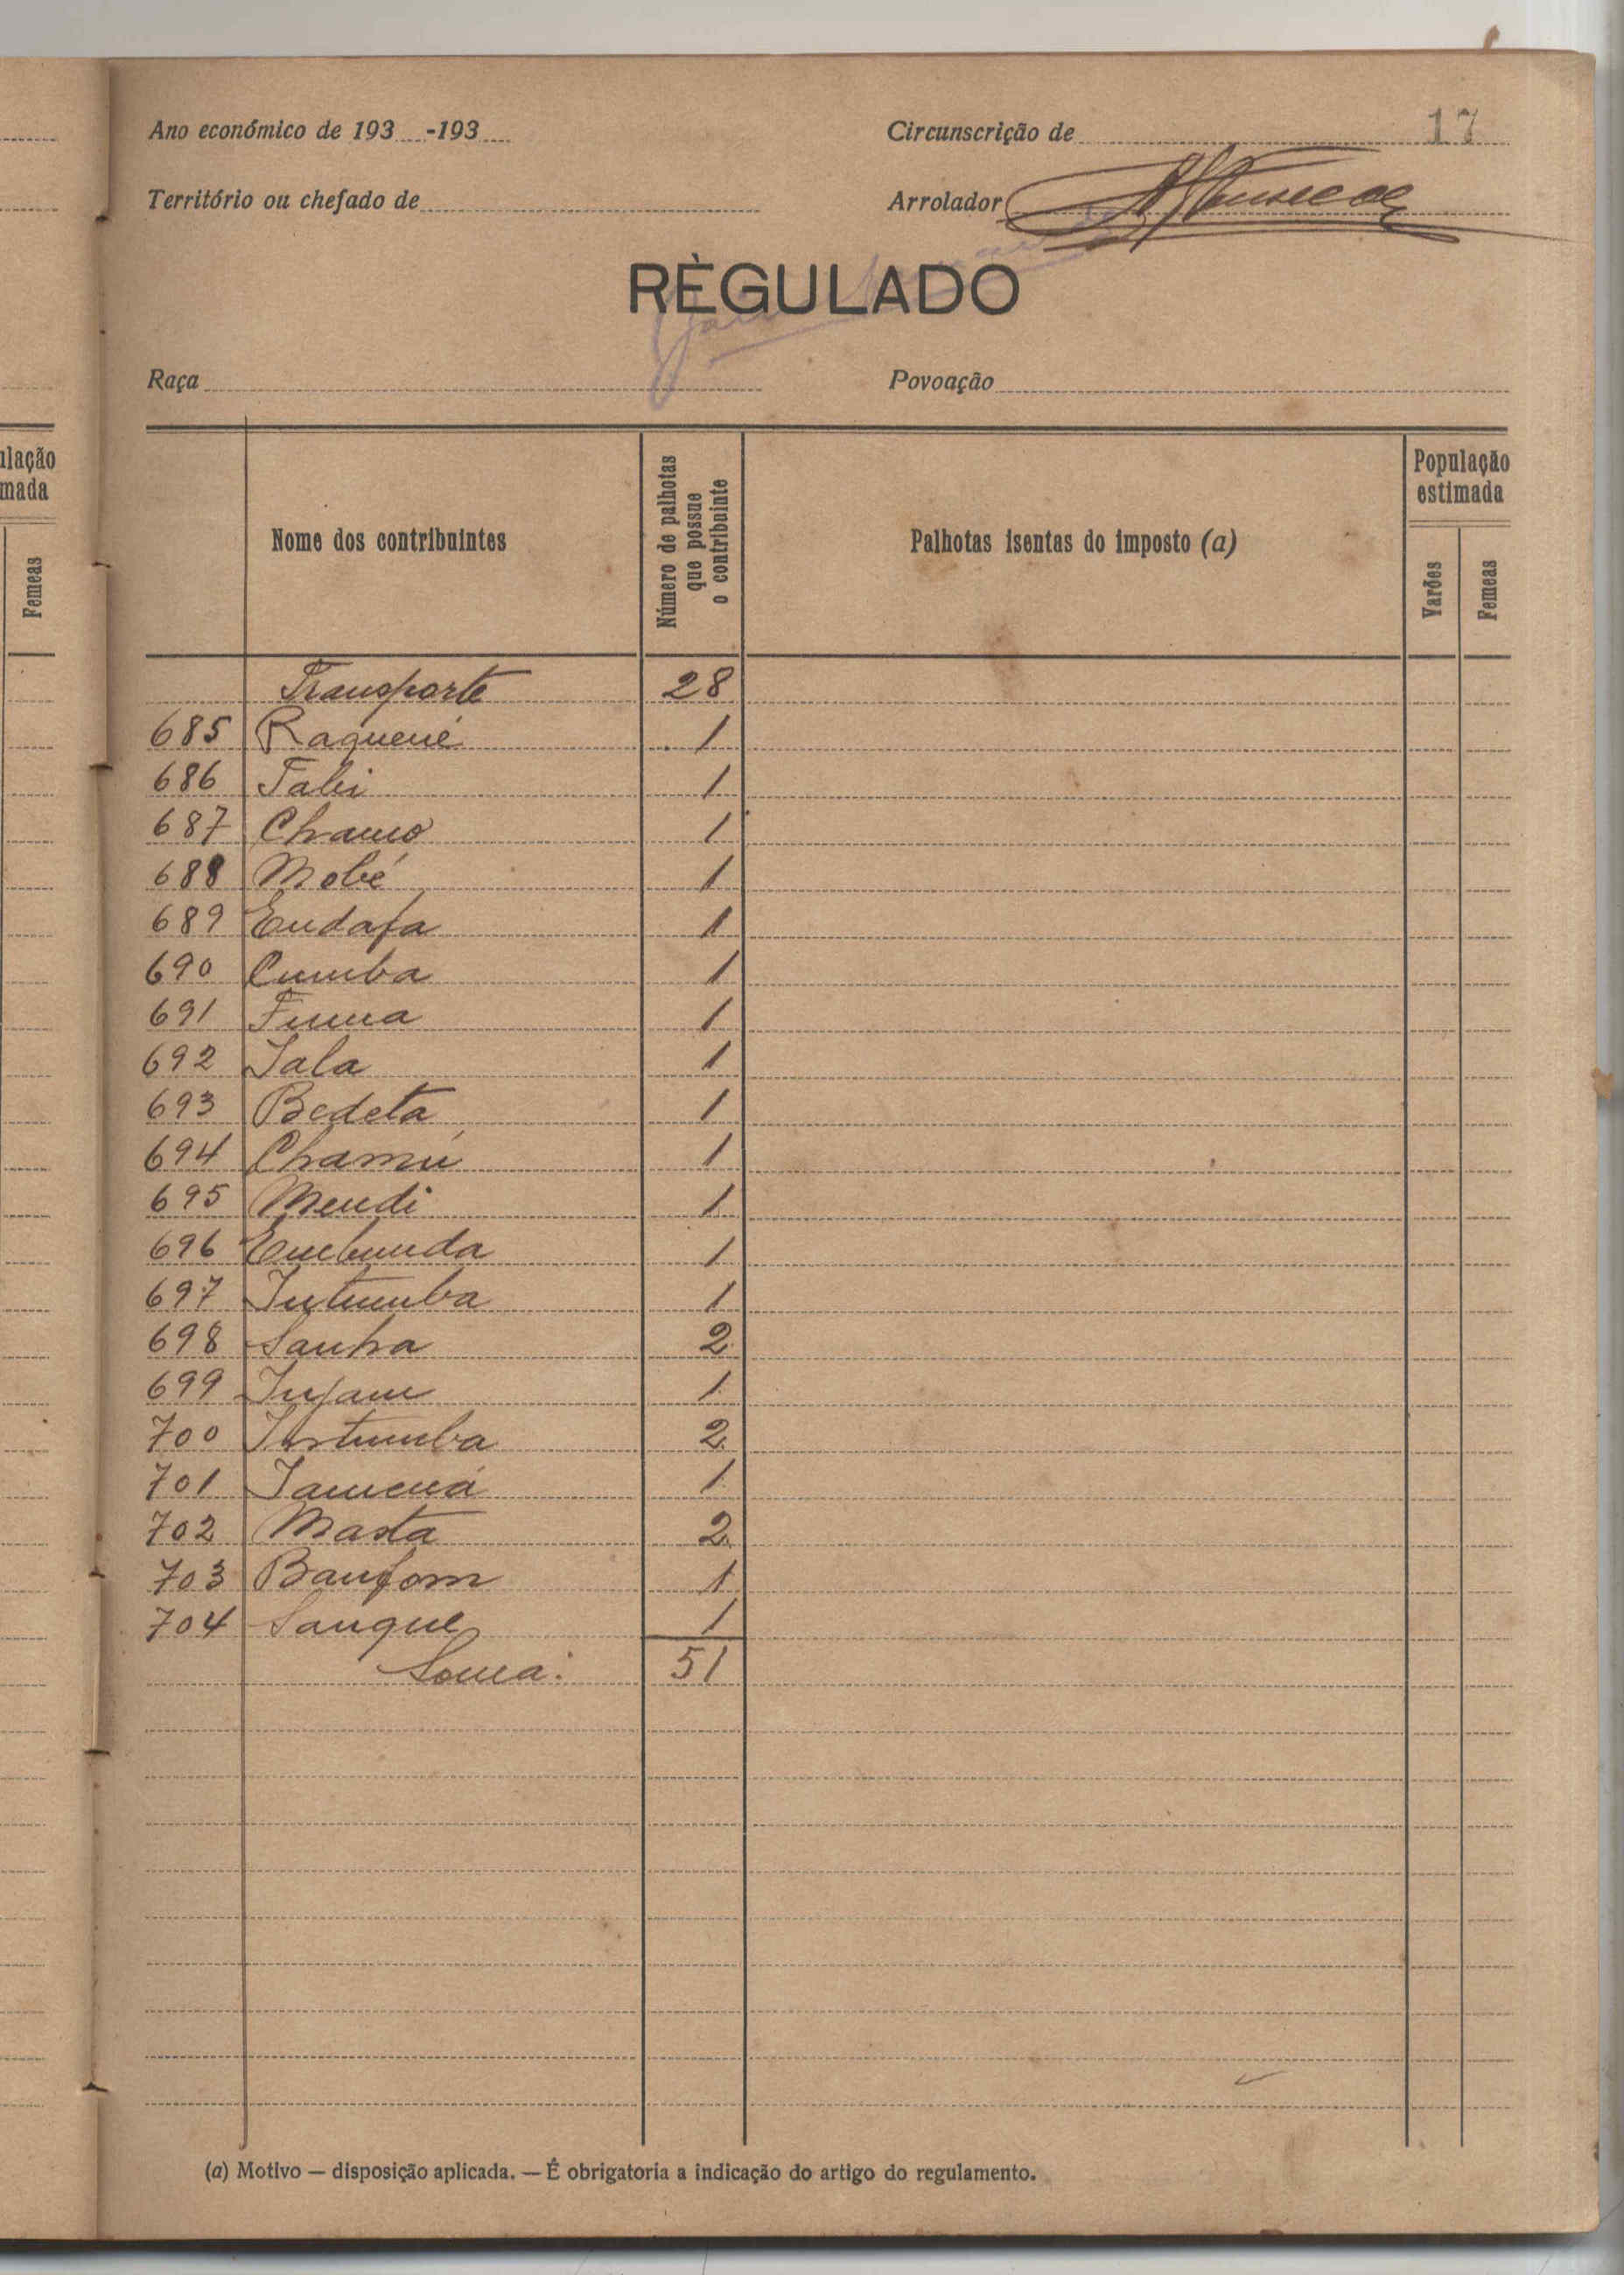 Ano económico de 193 -193 Circunscrição de 17
Território ou chefado de Arrolador
RÈGULADO
Raça Povoação
Nome dos contribuintes
Número de palhotas que possue o contribuinte
Palhotas isentas do imposto (a)
População estimada
Varões
Femeas
Transporte 28
685 Raquené 1
686 Tabi 1
687 Chamo 1
688 Mobé 1
689 Endafa 1
690 Cumba 1
691 Funna 1
692 Jala 1
693 Bedeta 1
694 Chamú 1
695 Mendi 1
696 Embunda 1
697 Intumba 1
698 Sanha 2
699 Injam 1
700 Intumba 2
701 Iamená 1
702 Masta 2
703 Banfom 1
704 Sanque 1
Soma: 51
(a) Motivo — disposição aplicada. — É obrigatoria a indicação do artigo do regulamento.
ulação
mada
Femeas